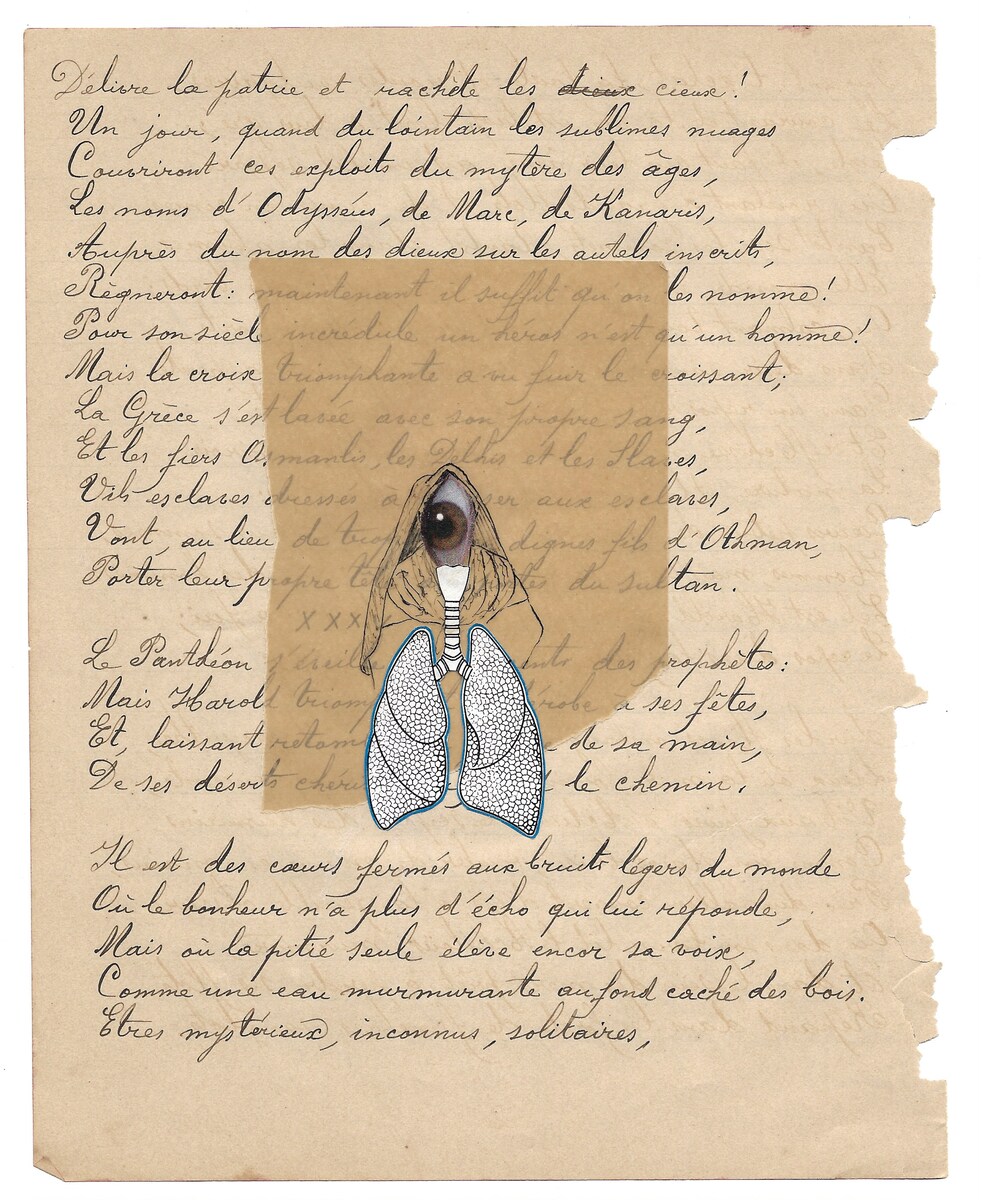 Délivre la patrie et rachète les dieux cieux !
Un jour, quand du lointain les sublimes nuages
Couvriront ces exploits du mytère des âges,
Les noms d' Odysséus, de Marc, de Kanaris,
Auprès du nom des dieux sur les autels inscrits,
Règneront : maintenant il suffit qu'on les nomme !
Pour son siècle incrédule un héros n'est qu'un homme !
Mais la croix triomphante a vu fuir le croissant ;
La Grèce s'est lavée avec son propre sang,
Et les fiers Osmanlis, les Delhis et les Slaves,
Vils esclaves dressés à ser aux esclaves,
Vont, au lieu de dignes fils d'Othman,
Porter leur propre du sultan.
XXX
Le Panthéon s'éveille des prophètes :
Mais Harold à ses fêtes,
Et, laissant de sa main,
De ses déserts le chemin.
Il est des cœurs fermés aux bruits légers du monde
Où le bonheur n'a plus d'écho qui lui réponde,
Mais où la pitié seule élève encor sa voix,
Comme une eau murmurante au fond caché des bois.
Etres mystérieux, inconnus, solitaires,